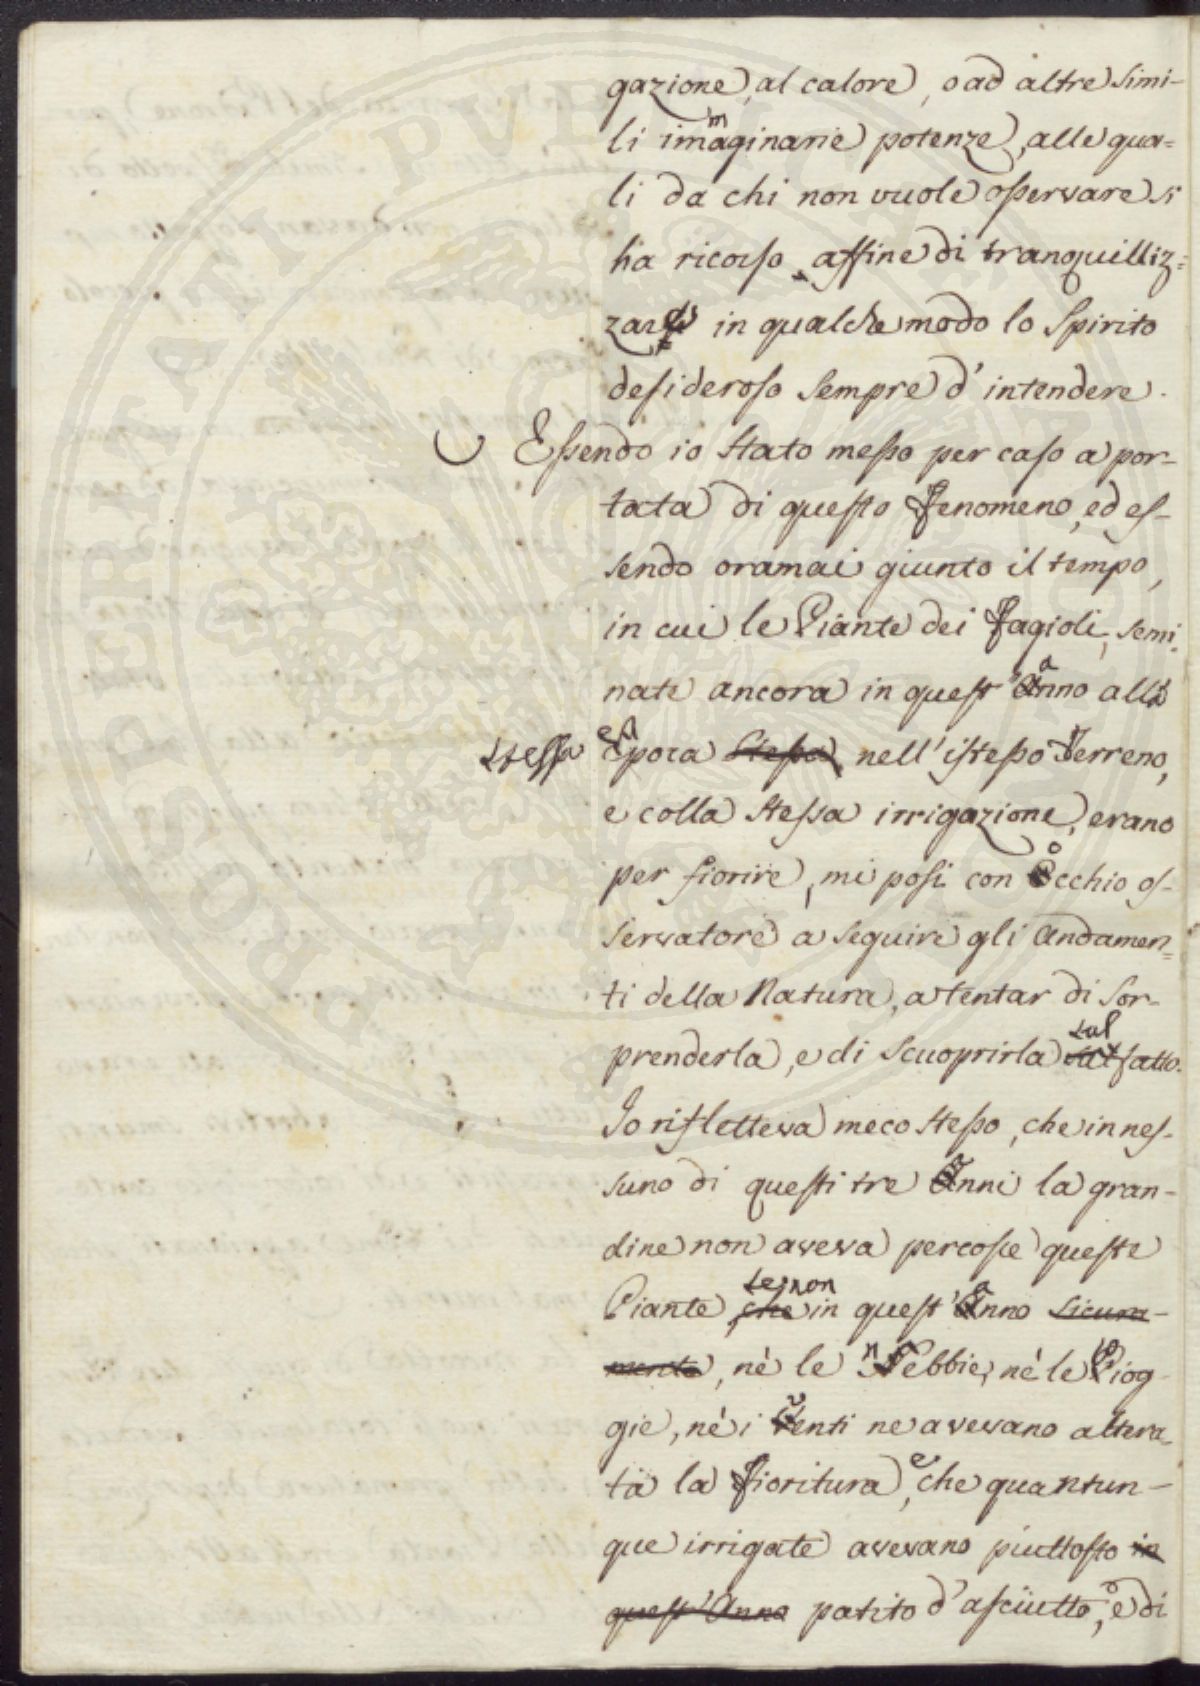 gazione, al calore, o ad altre simi-
li immaginarie potenze, alle qua=
li da chi non vuole osservare si
ha ricorso affine di tranquilliz=
zare in qualche modo lo Spirito
desideroso sempre d'intendere.
Essendo io stato messo per caso a por-
tata di questo fenomeno, ed es-
sendo oramai giunto il tempo,
in cui le Piante dei fagioli, semi-
nati ancora in quest'anno alla
stessa epoca stessa nell'istesso terreno,
e colla stessa irrigazione, erano
per fiorire, mi posi con occhio os-
servatore a seguire gli andamen=
ti della Natura, a tentar di sor-
prenderla, e di scuoprirla sul fatto.
Io rifletteva meco stesso, che in nes-
suno di questi tre anni la gran-
dine non aveva percosse queste
se non
Piante, che in quest'anno sicura-
mente, nè le nebbie, nè le piog-
gie, nè i venti ne avevano altera-
ta la fioritura, e che quantun-
que irrigate avevano piuttosto in
quest'Anno patito d'asciutto, e di
PROSPERITATI PVBLICAE